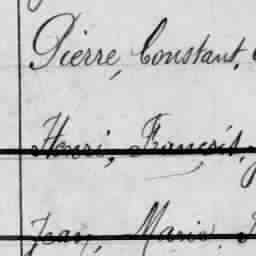 Pierre, Constant,
Henri, François,
Jean, Marie,